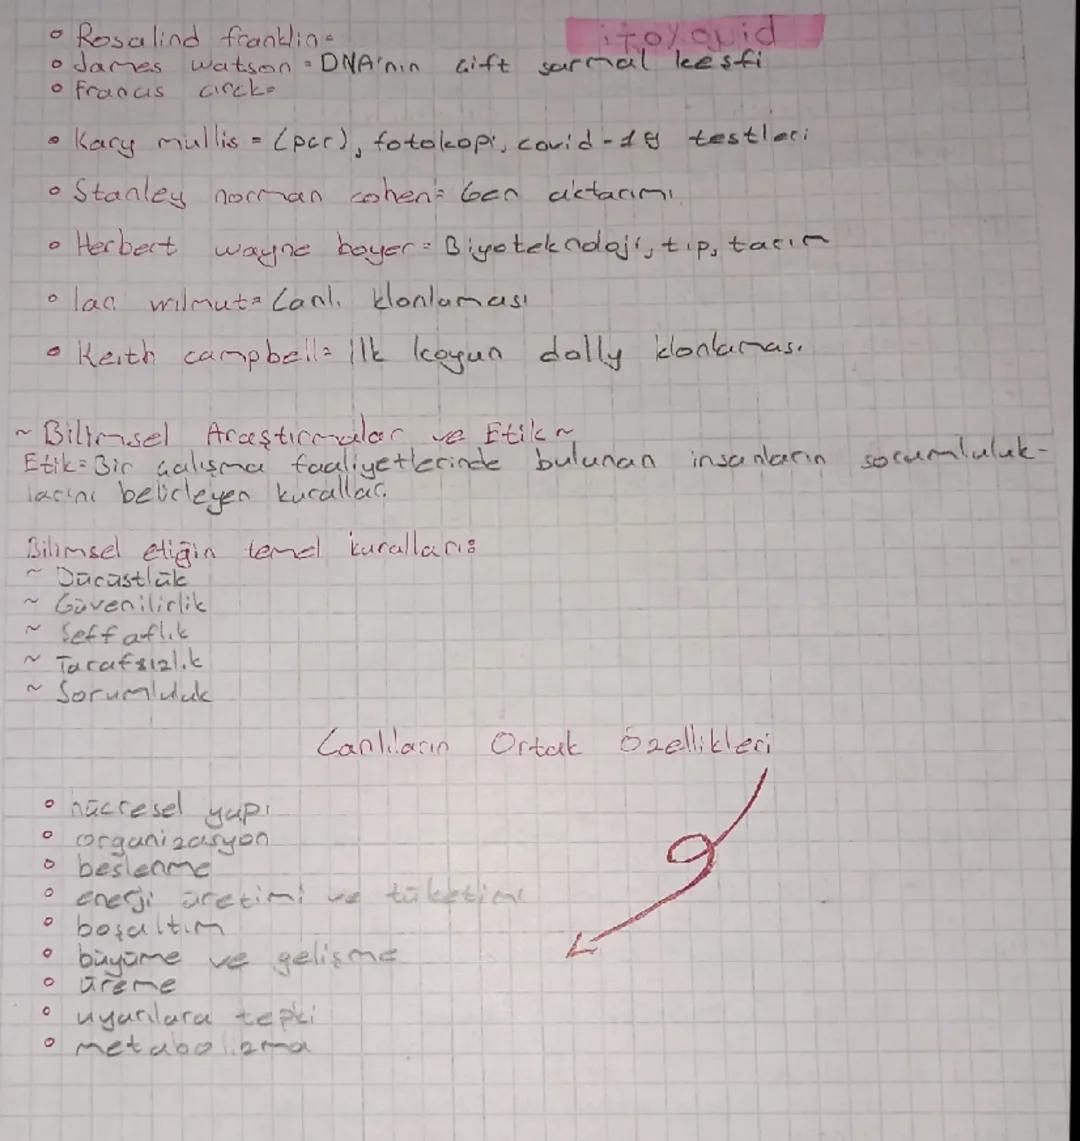 itoxquid
• Rosalind franklin =
• James watson = DNA'nın çift sarmal keşfi
• francis circk =
• Kary mullis = (pcr), fotokopi, covid-19 testleri
• Stanley norman cohen = Gen aktarımı
• Herbert wayne boyer = Biyoteknoloji, tıp, tarım
• Ian wilmut = Canlı klonlaması
• Keith campbell = İlk koyun dolly klonlaması.
~ Bilimsel Araştırmalar ve Etik ~
Etik = Bir çalışma faaliyetlerinde bulunan insanların sorumluluk-
larını belirleyen kurallar.
Bilimsel etiğin temel kuralları:
~ Dürüstlük
~ Güvenilirlik
~ Şeffaflık
~ Tarafsızlık
~ Sorumluluk
Canlıların Ortak Özellikleri
• hücresel yapı
• organizasyon
• beslenme
• enerji üretimi ve tüketimi
• boşaltım
• büyüme ve gelişme
• üreme
• uyarılara tepki
• metabolizma